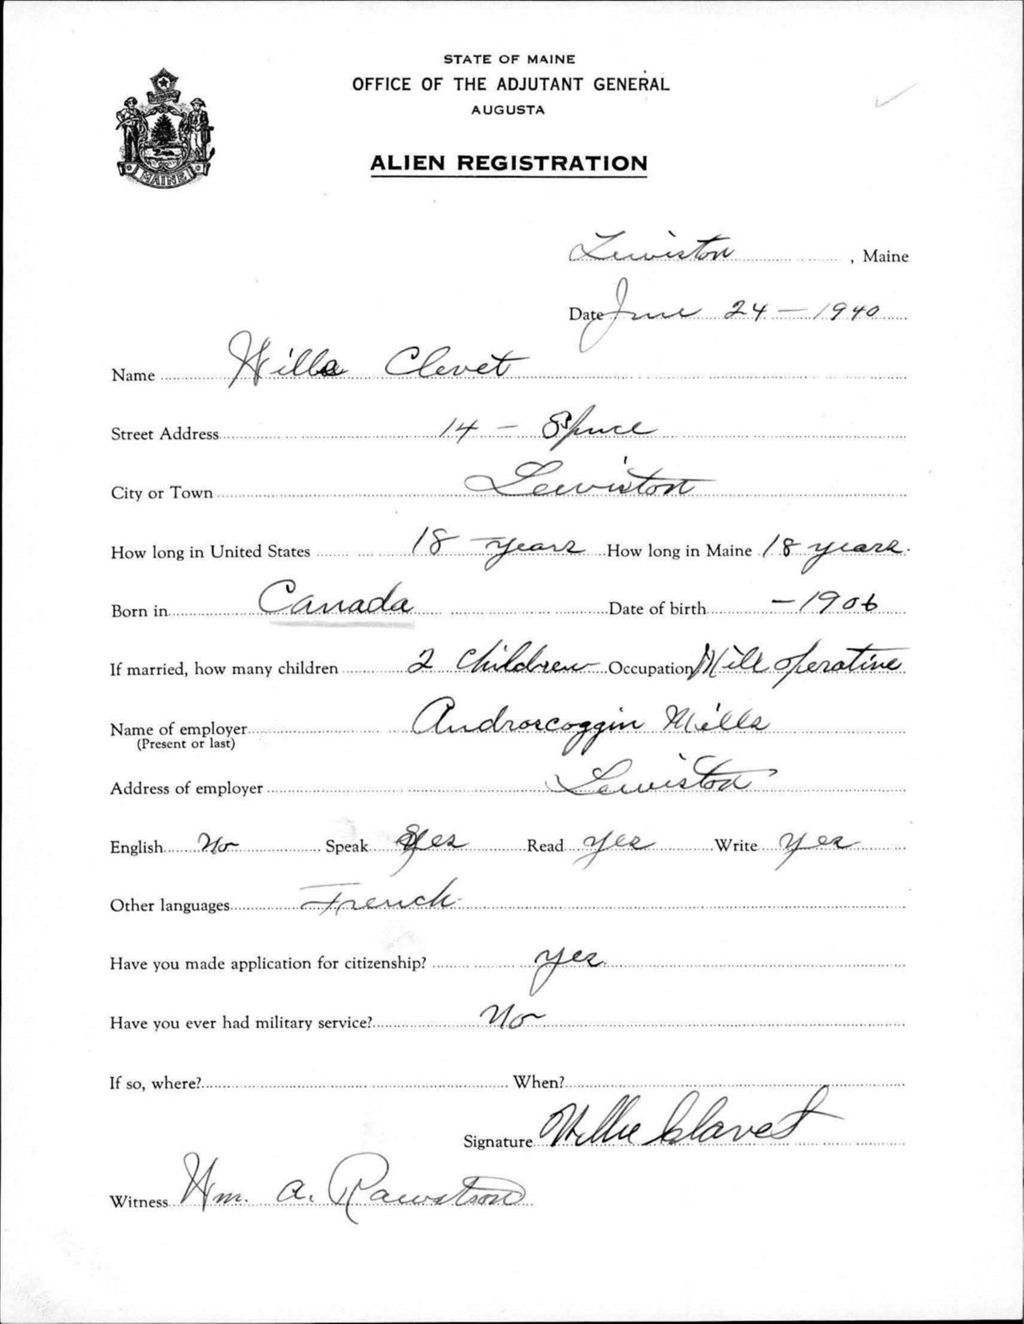 STATE OF MAINE
OFFICE OF THE ADJUTANT GENERAL
AUGUSTA
ALIEN REGISTRATION
MAINE
Lewiston, Maine
Date June 24 - 1940
Name Clevet
Street Address 14 - Spruce
City or Town Lewiston
How long in United States 18 years How long in Maine 18 years.
Born in Canada Date of birth - 1906
If married, how many children 2 Children Occupation Mill operative
Name of employer Androscoggin Mills
(Present or last)
Address of employer Lewiston
English No Speak Yes Read Yes Write Yes
Other languages French
Have you made application for citizenship? Yes
Have you ever had military service? No
If so, where? When?
Signature Willie Clavet
Witness Wm. A. Rawstron